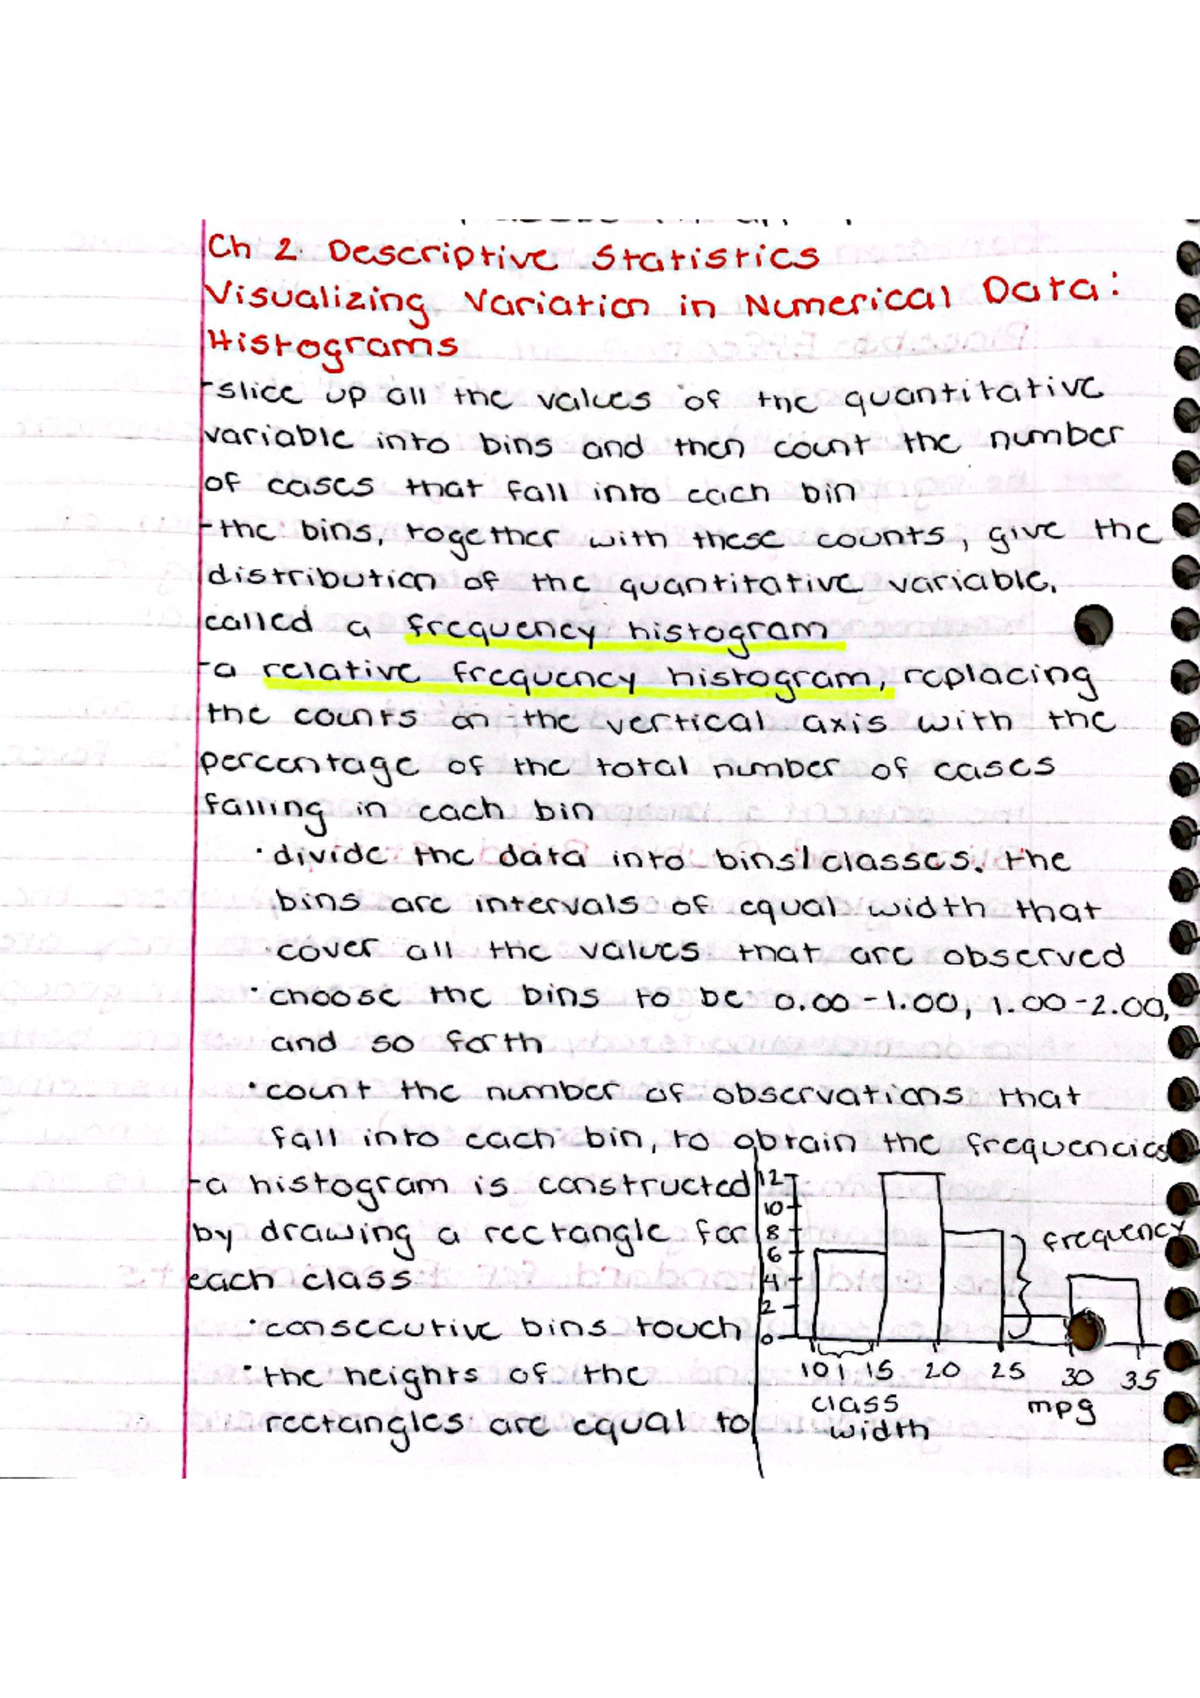 Ch 2. Descriptive Statistics
Visualizing Variation in Numerical Data:
Histograms
-slice up all the values of the quantitative
variable into bins and then count the number
of cases that fall into each bin
-the bins, together with these counts, give the
distribution of the quantitative variable.
called a frequency histogram
-a relative frequency histogram, replacing
the counts on the vertical axis with the
percentage of the total number of cases
falling in each bin
·divide the data into bins/classes. The
bins are intervals of equal width that
cover all the values that are observed
·choose the bins to be 0.00-1.00, 1.00-2.00,
and so forth
·count the number of observations that
fall into each bin, to obtain the frequencies
-a histogram is constructed
by drawing a rectangle for
each class
·consecutive bins touch
·the heights of the
rectangles are equal to
12
10
8
6
4
2
0
frequency
10 15 20 25 30 35
class
width
mpg